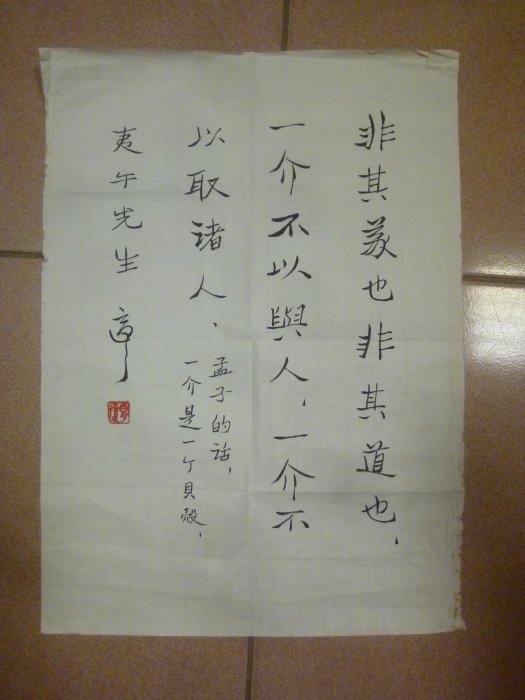 非其義也非其道也,
一介不以與人,一介不
以取諸人,
孟子的話,
一介是一个貝殼,
夷午先生 適